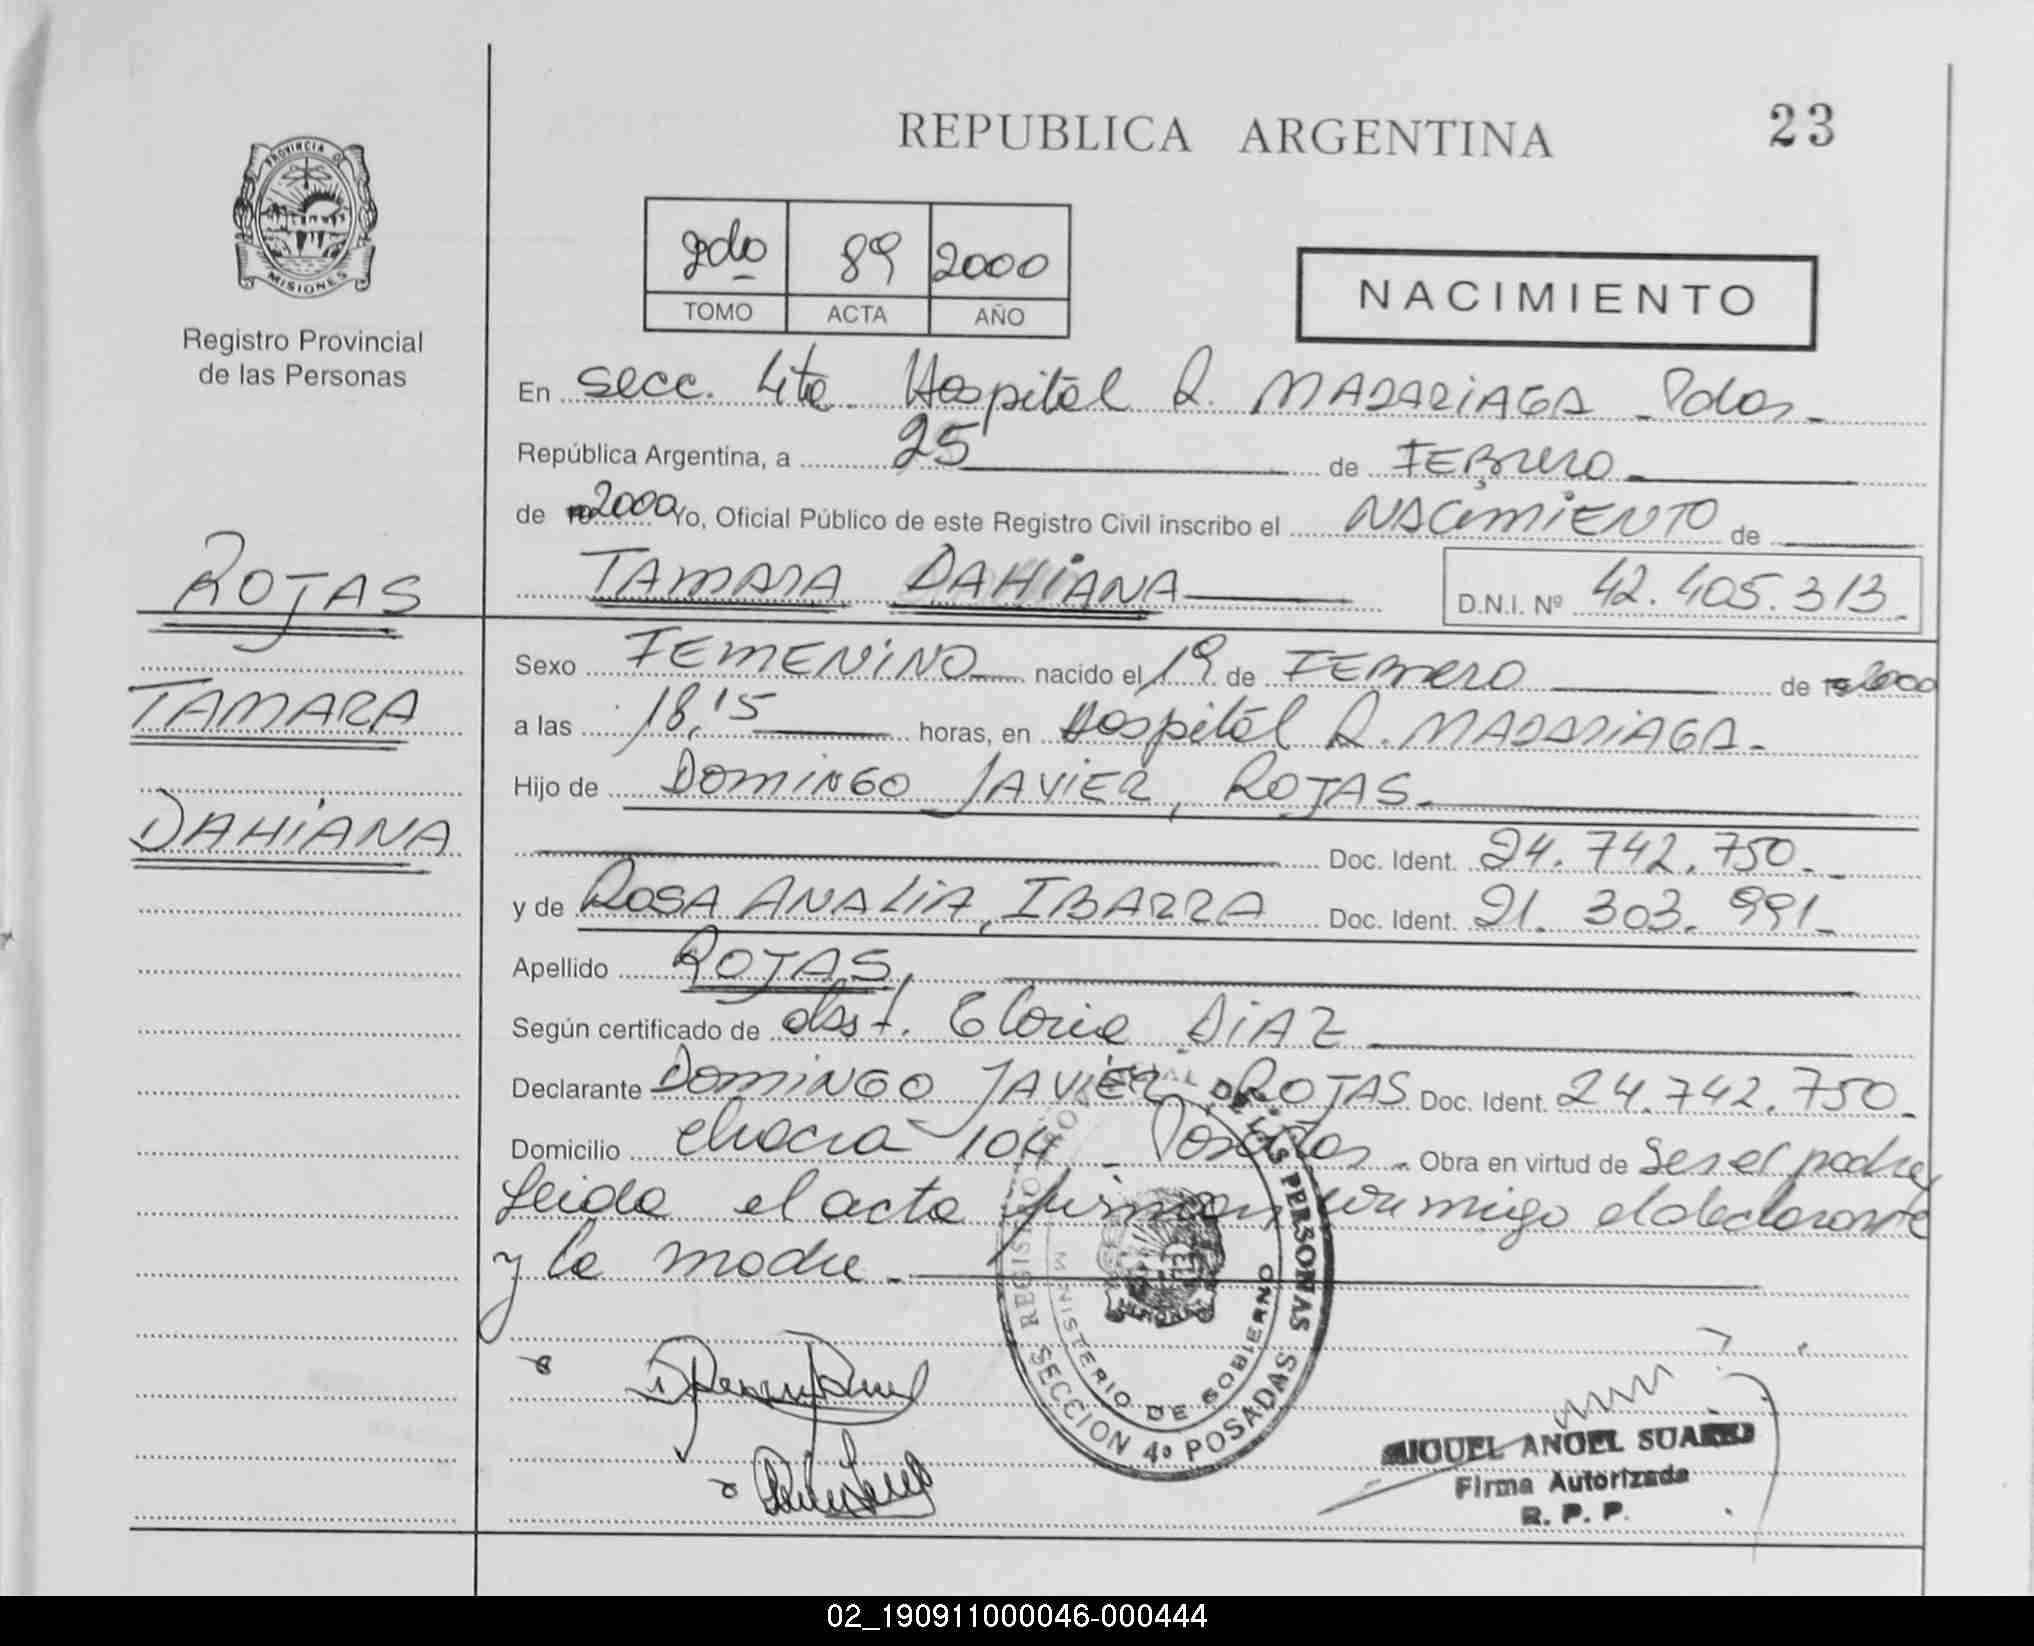 REPUBLICA ARGENTINA
23
PROVINCIA DE
MISIONES
Registro Provincial
de las Personas
2do 89 2000
TOMO ACTA AÑO
NACIMIENTO
En secc. 4ta Hospital R. MADARIAGA - Pdas -
República Argentina, a 25 de FEBRERO
de 2000 Yo, Oficial Público de este Registro Civil inscribo el NACIMIENTO de
TAMARA DAHIANA
D.N.I. Nº 42.405.313
ROJAS
TAMARA
DAHIANA
Sexo FEMENINO nacido el 19 de FEBRERO de 2000
a las 18,15 horas, en Hospital R. MADARIAGA.
Hijo de DOMINGO JAVIER, ROJAS.
Doc. Ident. 24.742.750.
y de ROSA ANALIA, IBARRA Doc. Ident. 21.303.991.
Apellido ROJAS,
Según certificado de obst. Gloria DIAZ
Declarante DOMINGO JAVIER, ROJAS Doc. Ident. 24.742.750.
Domicilio chacra 104 - Posadas - Obra en virtud de Ser el padre
Leida el acta firman conmigo el declarante
y la madre.
REGISTRO PROVINCIAL DE LAS PERSONAS
MINISTERIO DE GOBIERNO
SECCION 4ª POSADAS
MIGUEL ANGEL SUAREZ
Firma Autorizada
R. P. P.
02_190911000046-000444